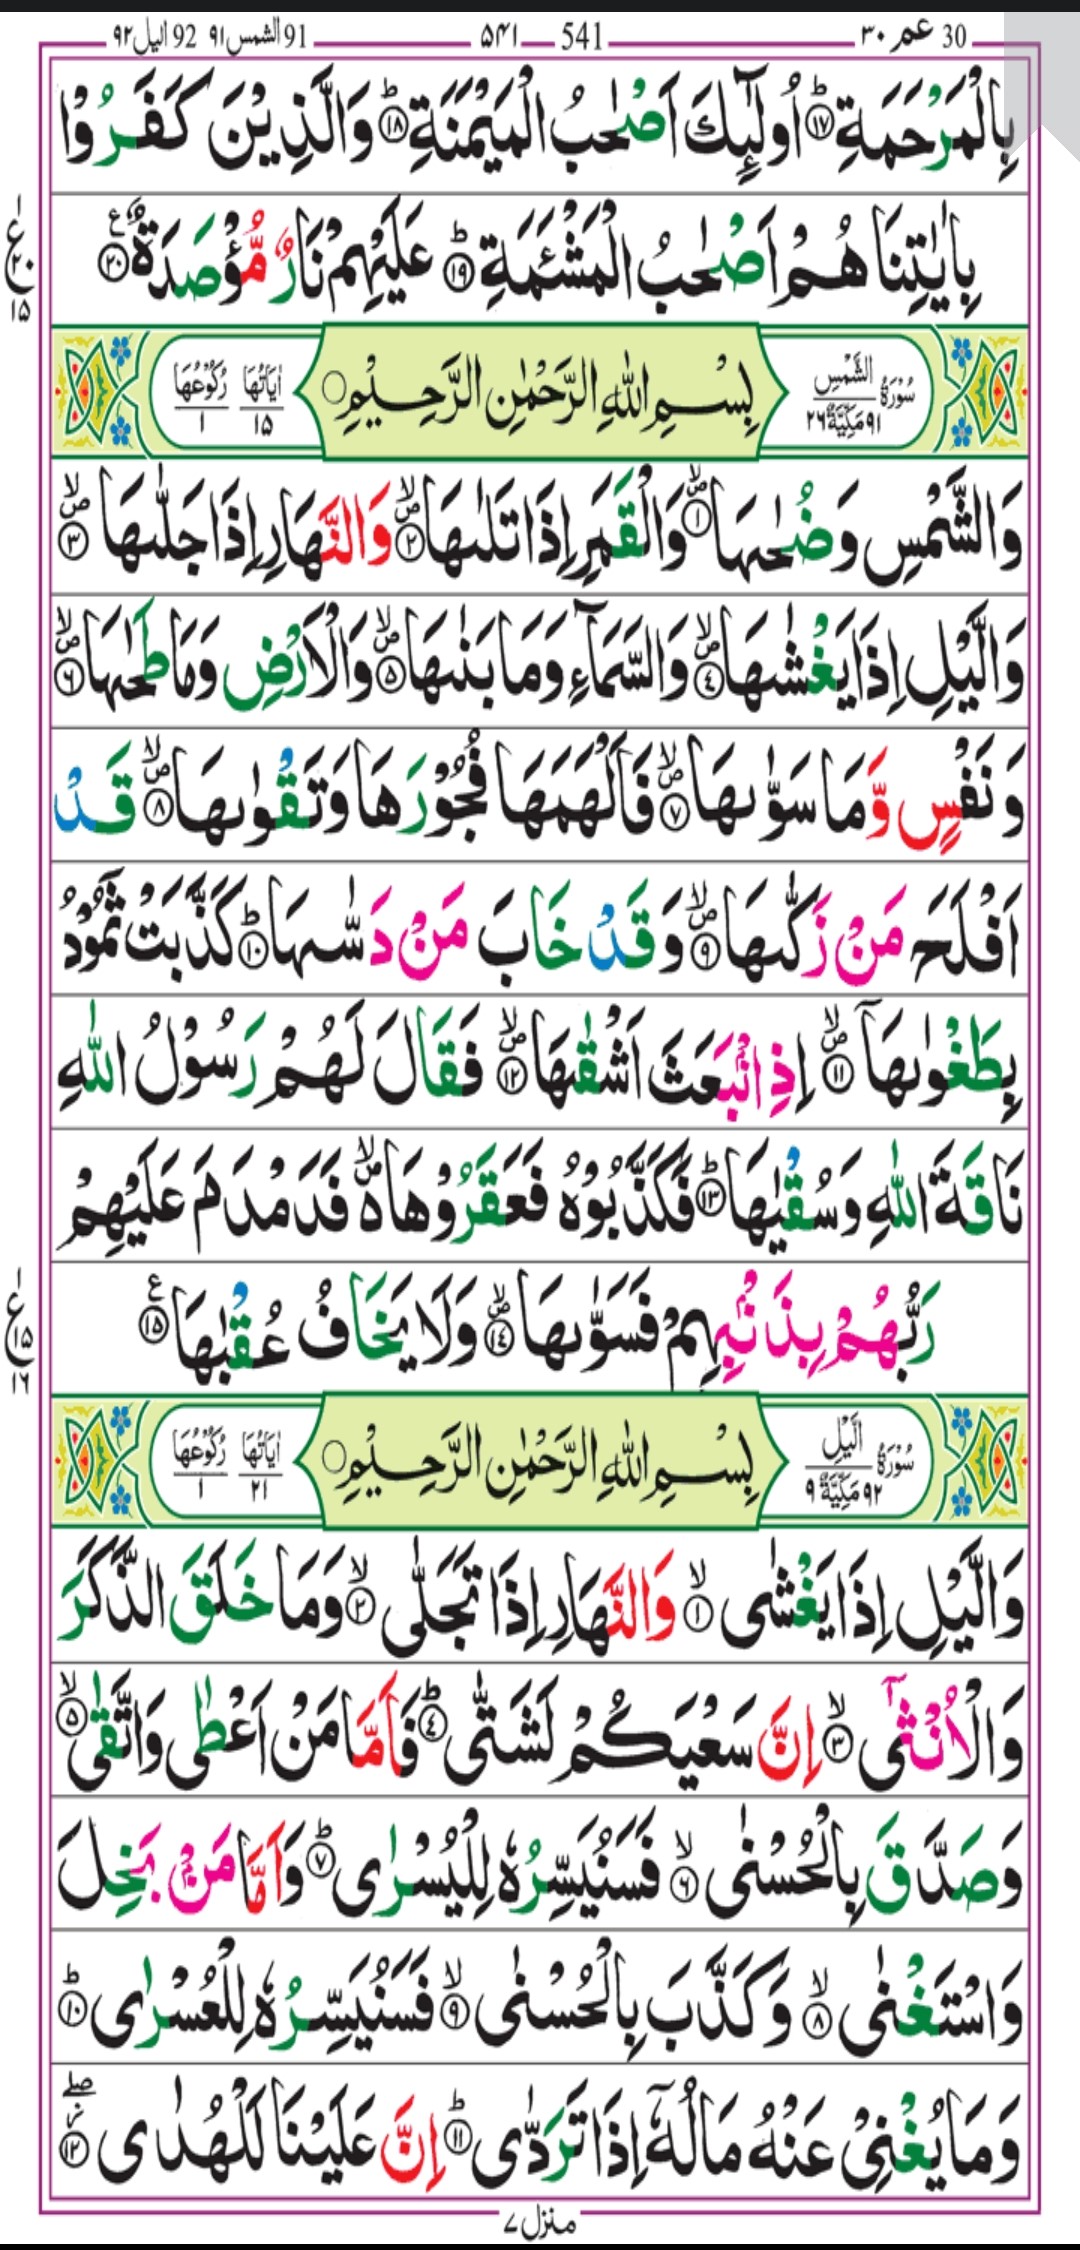 30 عم ٣٠ 541 ۵۴۱ 91 الشمس ٩١ 92 اليل ٩٢
بِالْمَرْحَمَةِ ؕ﴿۱۷﴾ اُولٰٓئِكَ اَصْحٰبُ الْمَيْمَنَةِ ؕ﴿۱۸﴾ وَالَّذِيْنَ كَفَرُوْا
بِاٰيٰتِنَا هُمْ اَصْحٰبُ الْمَشْـَٔمَةِ ؕ﴿۱۹﴾ عَلَيْهِمْ نَارٌ مُّؤْصَدَةٌ ﴿۲۰﴾
ع ۲۰ ۱۵
سُوْرَةُ الشَّمْسِ ۹۱ مَكِّيَّةٌ ۲۶ بِسْمِ اللّٰهِ الرَّحْمٰنِ الرَّحِيْمِ اٰيَاتُهَا ۱۵ رُكُوْعُهَا ۱
وَالشَّمْسِ وَضُحٰىهَا ۪ۙ﴿۱﴾ وَالْقَمَرِ اِذَا تَلٰىهَا ۪ۙ﴿۲﴾ وَالنَّهَارِ اِذَا جَلّٰىهَا ۪ۙ﴿۳﴾
وَالَّيْلِ اِذَا يَغْشٰىهَا ۪ۙ﴿۴﴾ وَالسَّمَآءِ وَمَا بَنٰىهَا ۪ۙ﴿۵﴾ وَالْاَرْضِ وَمَا طَحٰىهَا ۪ۙ﴿۶﴾
وَنَفْسٍ وَّمَا سَوّٰىهَا ۪ۙ﴿۷﴾ فَاَلْهَمَهَا فُجُوْرَهَا وَتَقْوٰىهَا ۪ۙ﴿۸﴾ قَدْ
اَفْلَحَ مَنْ زَكّٰىهَا ۪ۙ﴿۹﴾ وَقَدْ خَابَ مَنْ دَسّٰىهَا ؕ﴿۱۰﴾ كَذَّبَتْ ثَمُوْدُ
بِطَغْوٰىهَاۤ ۪ۙ﴿۱۱﴾ اِذِ انْۢبَعَثَ اَشْقٰىهَا ۪ۙ﴿۱۲﴾ فَقَالَ لَهُمْ رَسُوْلُ اللّٰهِ
نَاقَةَ اللّٰهِ وَسُقْيٰهَا ؕ﴿۱۳﴾ فَكَذَّبُوْهُ فَعَقَرُوْهَا ۪ۙ۬ فَدَمْدَمَ عَلَيْهِمْ
رَبُّهُمْ بِذَنْۢبِهِمْ فَسَوّٰىهَا ۪ۙ﴿۱۴﴾ وَلَا يَخَافُ عُقْبٰهَا ﴿۱۵﴾
ع ۱۵ ۱۶
سُوْرَةُ الَّيْلِ ۹۲ مَكِّيَّةٌ ۹ بِسْمِ اللّٰهِ الرَّحْمٰنِ الرَّحِيْمِ اٰيَاتُهَا ۲۱ رُكُوْعُهَا ۱
وَالَّيْلِ اِذَا يَغْشٰى ۙ﴿۱﴾ وَالنَّهَارِ اِذَا تَجَلّٰى ۙ﴿۲﴾ وَمَا خَلَقَ الذَّكَرَ
وَالْاُنْثٰۤى ۙ﴿۳﴾ اِنَّ سَعْيَكُمْ لَشَتّٰى ؕ﴿۴﴾ فَاَمَّا مَنْ اَعْطٰى وَاتَّقٰى ۙ﴿۵﴾
وَصَدَّقَ بِالْحُسْنٰى ۙ﴿۶﴾ فَسَنُيَسِّرُهٗ لِلْيُسْرٰى ؕ﴿۷﴾ وَاَمَّا مَنْۢ بَخِلَ
وَاسْتَغْنٰى ۙ﴿۸﴾ وَكَذَّبَ بِالْحُسْنٰى ۙ﴿۹﴾ فَسَنُيَسِّرُهٗ لِلْعُسْرٰى ؕ﴿۱۰﴾
وَمَا يُغْنِيْ عَنْهُ مَالُهٗۤ اِذَا تَرَدّٰى ؕ﴿۱۱﴾ اِنَّ عَلَيْنَا لَلْهُدٰى ۖ﴿۱۲﴾
منزل ۷